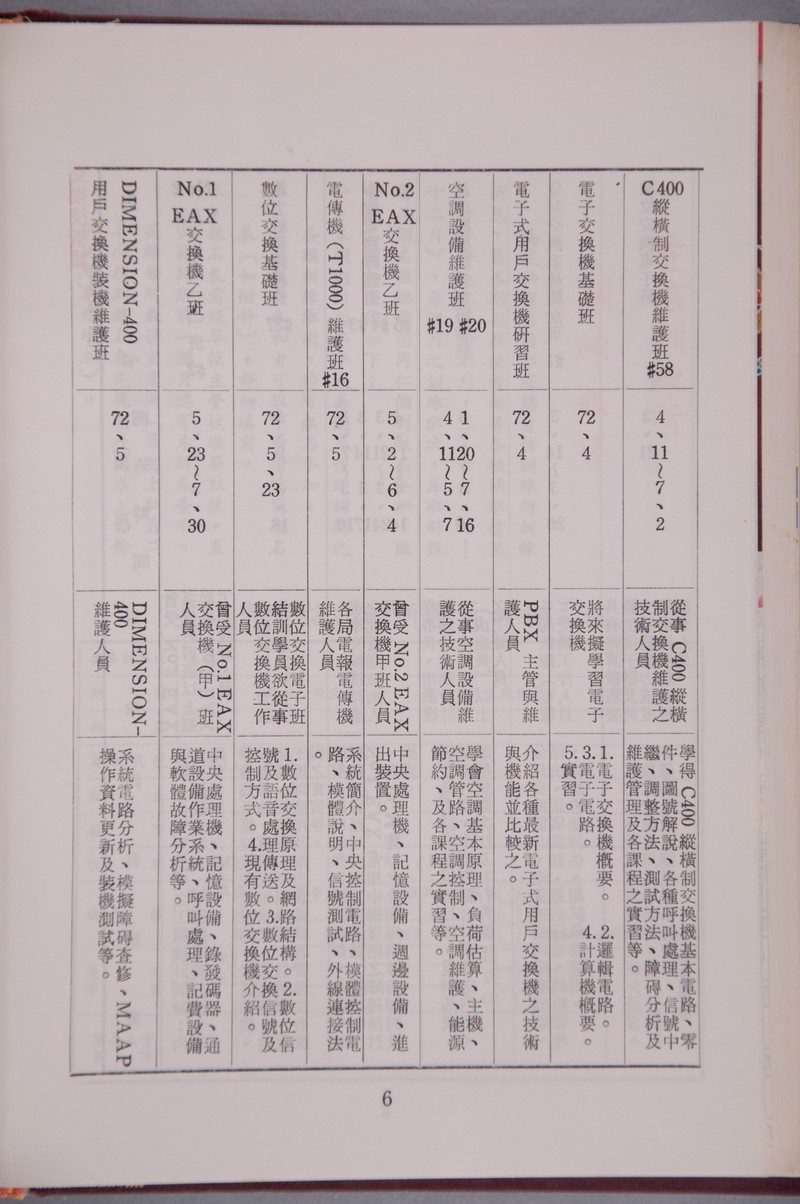 C400縱橫制交換機維護班#58
4、11～7、2
從事C400縱橫
制交換機維護之
技術人員
學得C400縱橫制交換機基本電路、零
件、圖號解說、各種呼叫處理、信號、中
繼、調整方法、測試方法、障碍分析及
維護管理及各課程之實習等。
電子交換機基礎班
72、4
將來擬學習電子
交換機
1.電子交換機概要。2.邏輯電路。
3.電子電路。4.計算機概要。
5.實習。
電子式用戶交換機研習班
72、4
PBX主管與維
護人員
介紹各種最新電子式用戶交換機之技術
與機能並比較之。
空調設備維護班#19 #20
1、20～7、16
4、11～5、7
從事空調設備維
護之技術人員
學會空調基本原理、負荷估算、主機、
空調管路、空調控制、空調維護、能源
節約、及各課程之實習等。
No.2 EAX交換機乙班
5、2～6、4
曾受No2EAX
交換機甲班人員
中央處理機、記憶設備、週邊設備、進
出裝置。
電傳機(T1000)維護班#16
72、5
各局電報電傳機
維護人員
系統簡介、中央控制電路、模體控制電
路、模體說明、信號測試、外線連接法
。
數位交換基礎班
72、5、23
數位交換電子班
結訓學員欲從事
數位交換機工作
人員
1.數位交換原理及網路結構。2.數位信
號及語音處理傳送。3.數位交換信號及
控制方式。4.現有數位交換機介紹。
No.1 EAX交換機乙班
5、23～7、30
曾受No.1EAX
交換機(甲)班
人員
中央處理機、記憶設備、發碼器、通
道設備作業系統、呼叫處理、記費設備
與軟體故障分析等。
DIMENSION-400
用戶交換機裝機維護班
72、5
DIMENSION-
400
維護人員
系統電路分析、模擬障碍查修、MAAP
操作資料更新及裝機測試等。
6